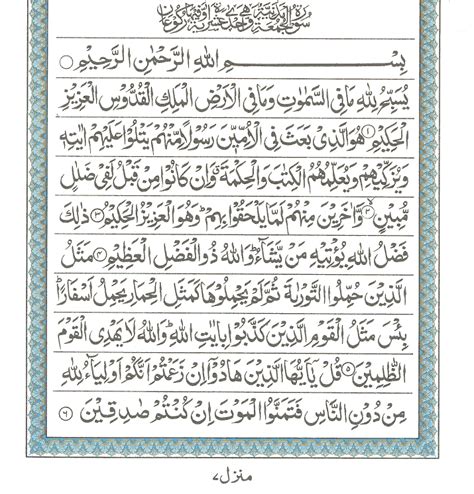 سُوْرَةُ الْجُمُعَةِ مَدَنِيَّةٌ وَّهِيَ اِحْدٰى عَشْرَةَ اٰيَةً وَّفِيْهَا رُكُوْعَانِ
بِسْمِ اللهِ الرَّحْمٰنِ الرَّحِيْمِ
يُسَبِّحُ لِلّٰهِ مَا فِى السَّمٰوٰتِ وَمَا فِى الْاَرْضِ الْمَلِكِ الْقُدُّوْسِ الْعَزِيْزِ
الْحَكِيْمِ ۝۱ هُوَ الَّذِىْ بَعَثَ فِى الْاُمِّيّٖنَ رَسُوْلًا مِّنْهُمْ يَتْلُوْا عَلَيْهِمْ اٰيٰتِهٖ
وَيُزَكِّيْهِمْ وَيُعَلِّمُهُمُ الْكِتٰبَ وَالْحِكْمَةَ وَاِنْ كَانُوْا مِنْ قَبْلُ لَفِىْ ضَلٰلٍ
مُّبِيْنٍ ۝۲ وَّاٰخَرِيْنَ مِنْهُمْ لَمَّا يَلْحَقُوْا بِهِمْ ؕ وَهُوَ الْعَزِيْزُ الْحَكِيْمُ ۝۳ ذٰلِكَ
فَضْلُ اللهِ يُؤْتِيْهِ مَنْ يَّشَآءُ ؕ وَاللهُ ذُو الْفَضْلِ الْعَظِيْمِ ۝۴ مَثَلُ
الَّذِيْنَ حُمِّلُوا التَّوْرٰىةَ ثُمَّ لَمْ يَحْمِلُوْهَا كَمَثَلِ الْحِمَارِ يَحْمِلُ اَسْفَارًا ؕ
بِئْسَ مَثَلُ الْقَوْمِ الَّذِيْنَ كَذَّبُوْا بِاٰيٰتِ اللهِ ؕ وَاللهُ لَا يَهْدِى الْقَوْمَ
الظّٰلِمِيْنَ ۝۵ قُلْ يٰۤاَيُّهَا الَّذِيْنَ هَادُوْۤا اِنْ زَعَمْتُمْ اَنَّكُمْ اَوْلِيَآءُ لِلّٰهِ
مِنْ دُوْنِ النَّاسِ فَتَمَنَّوُا الْمَوْتَ اِنْ كُنْتُمْ صٰدِقِيْنَ ۝۶
منزل ۷